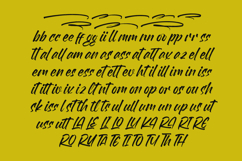 bb cc ee ff gg ii ll mm nn oo pp rr ss
tt al all am an as ass at att av az el ell
em en es ess et ett ev ht il ill im in iss
it itt iv iz lt nt om on op or os ou sh
sk iss lst th tl ts ul ull um un up us ut
uss utt LA LE LI LO LU RA RE RI RE
RO RU TA TE TI TO TU Th TH